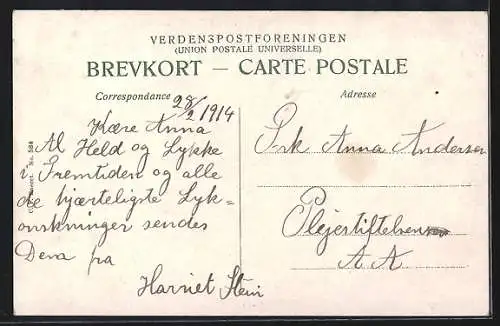 VERDENSPOSTFORENINGEN
(UNION POSTALE UNIVERSELLE)
BREVKORT — CARTE POSTALE
Correspondance 28/2 1914
Kære Anna
Al Held og Lykke
i Fremtiden og alle
de hjærteligste Lyk-
ønskninger sendes
Dem fra
Harriet Stein
Adresse
Frk Anna Andersen
Plejestiftelsen
A A